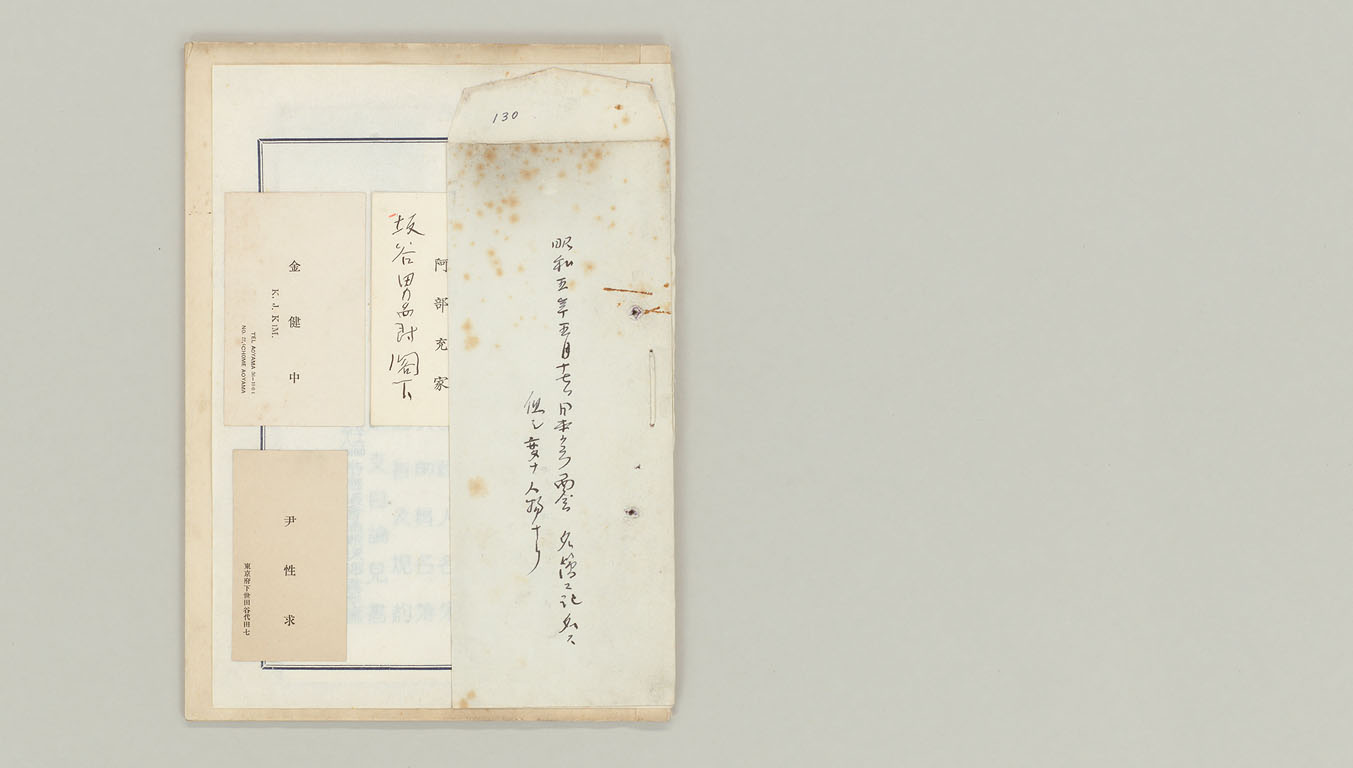 130
昭和五年五月十七日来訪面会 名簿ニ記名ス
但シ変ナ人物ナリ
阿部充家
坂谷男爵閣下
金健中
K. J. KIM.
TEL AOYAMA
AOYAMA
尹性求
東京府下世田谷代田七